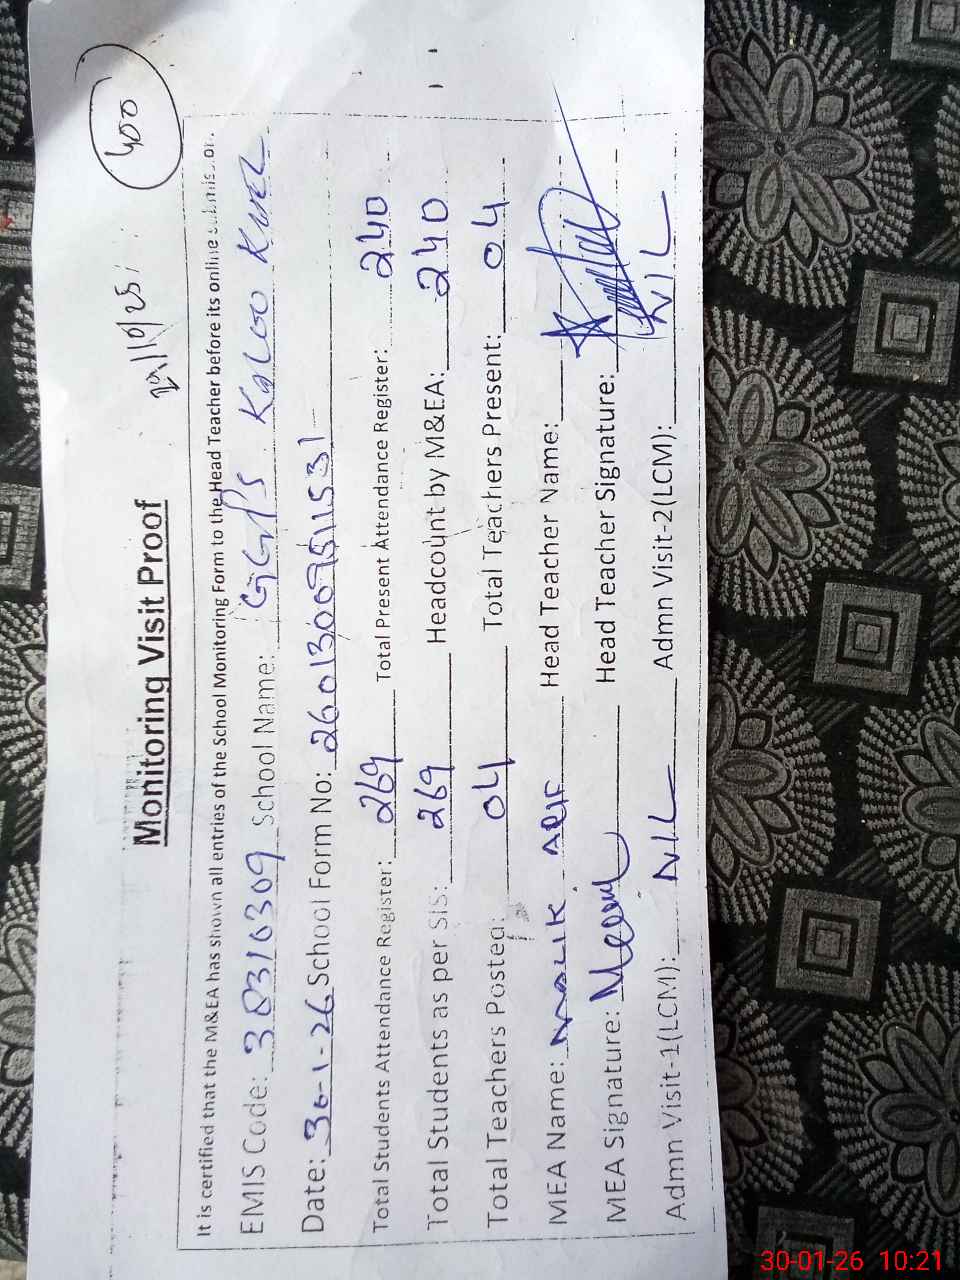 400
Monitoring Visit Proof
It is certified that the M&EA has shown all entries of the School Monitoring Form to the Head Teacher before its online
EMIS Code: 38310309 School Name: GGPS Kaloo Khel
Date: 30-1-26 School Form No: 26013009511531
Total Students Attendance Register: 269 Total Present Attendance Register: 240
Total Students as per SIS: 269 Headcount by M&EA: 240
Total Teachers Posted: 04 Total Teachers Present: 04
MEA Name: MALIK Head Teacher Name:
MEA Signature: Head Teacher Signature:
Admn Visit-1(LCM): NIL Admn Visit-2(LCM): NIL
30-01-26 10:21